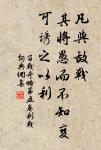 凡與敵戰
其將愚而不知變
可誘之以利
百戰奇略第五卷利戰
詞典網集